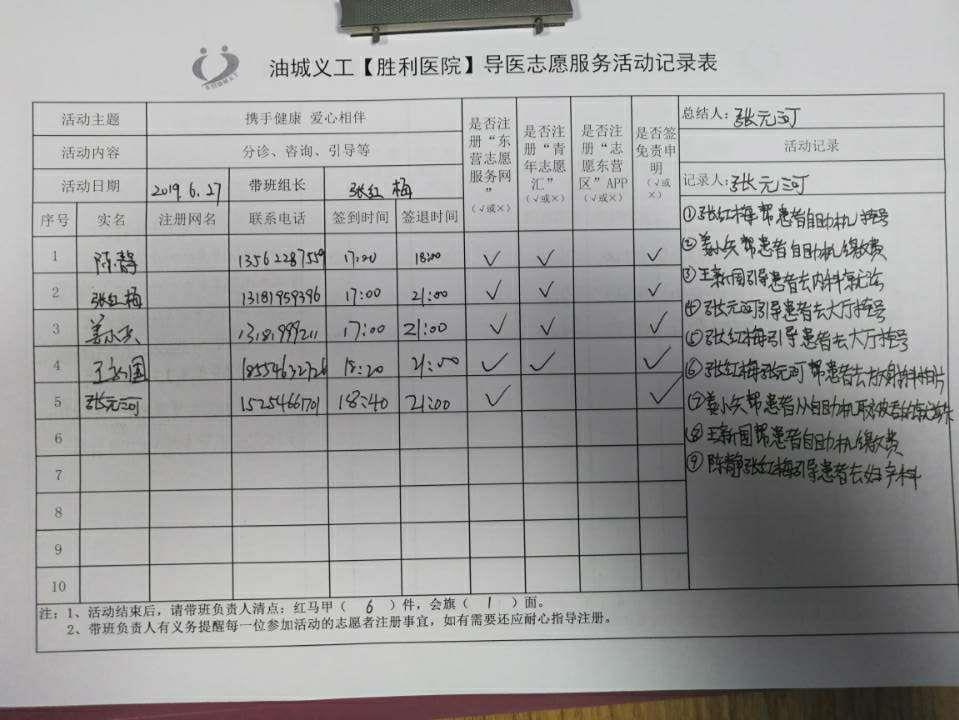 油城义工【胜利医院】导医志愿服务活动记录表
活动主题 携手健康 爱心相伴
活动内容 分诊、咨询、引导等
活动日期 2019.6.27 带班组长 张红梅
是否注册“东营志愿服务网”（√或×）
是否注册“青年志愿汇”（√或×）
是否注册“志愿东营区”APP（√或×）
是否签免责申明（√或×）
总结人：张元河
活动记录
记录人：张元河
序号 实名 注册网名 联系电话 签到时间 签退时间
1 陈静 13562287559 17:20 18:00 √ √ √
2 张红梅 13181959396 17:00 21:00 √ √ √
3 姜小兵 13181999211 17:00 21:00 √ √ √
4 王新国 18554632726 18:20 21:00 √ √ √
5 张元河 15254661701 18:40 21:00 √ √
6
7
8
9
10
①张红梅帮患者自助机挂号
②姜小兵帮患者自助机缴费
③王新国引导患者去内科就诊
④张元河引导患者去大厅挂号
⑤张红梅引导患者去大厅挂号
⑥张红梅张元河帮患者去放射科拍片
⑦姜小兵帮患者从自助机取
⑧王新国帮患者自助机缴费
⑨陈静张红梅引导患者去妇产科
注：1、活动结束后，请带班负责人清点：红马甲（ 6 ）件，会旗（ 1 ）面。
2、带班负责人有义务提醒每一位参加活动的志愿者注册事宜，如有需要还应耐心指导注册。